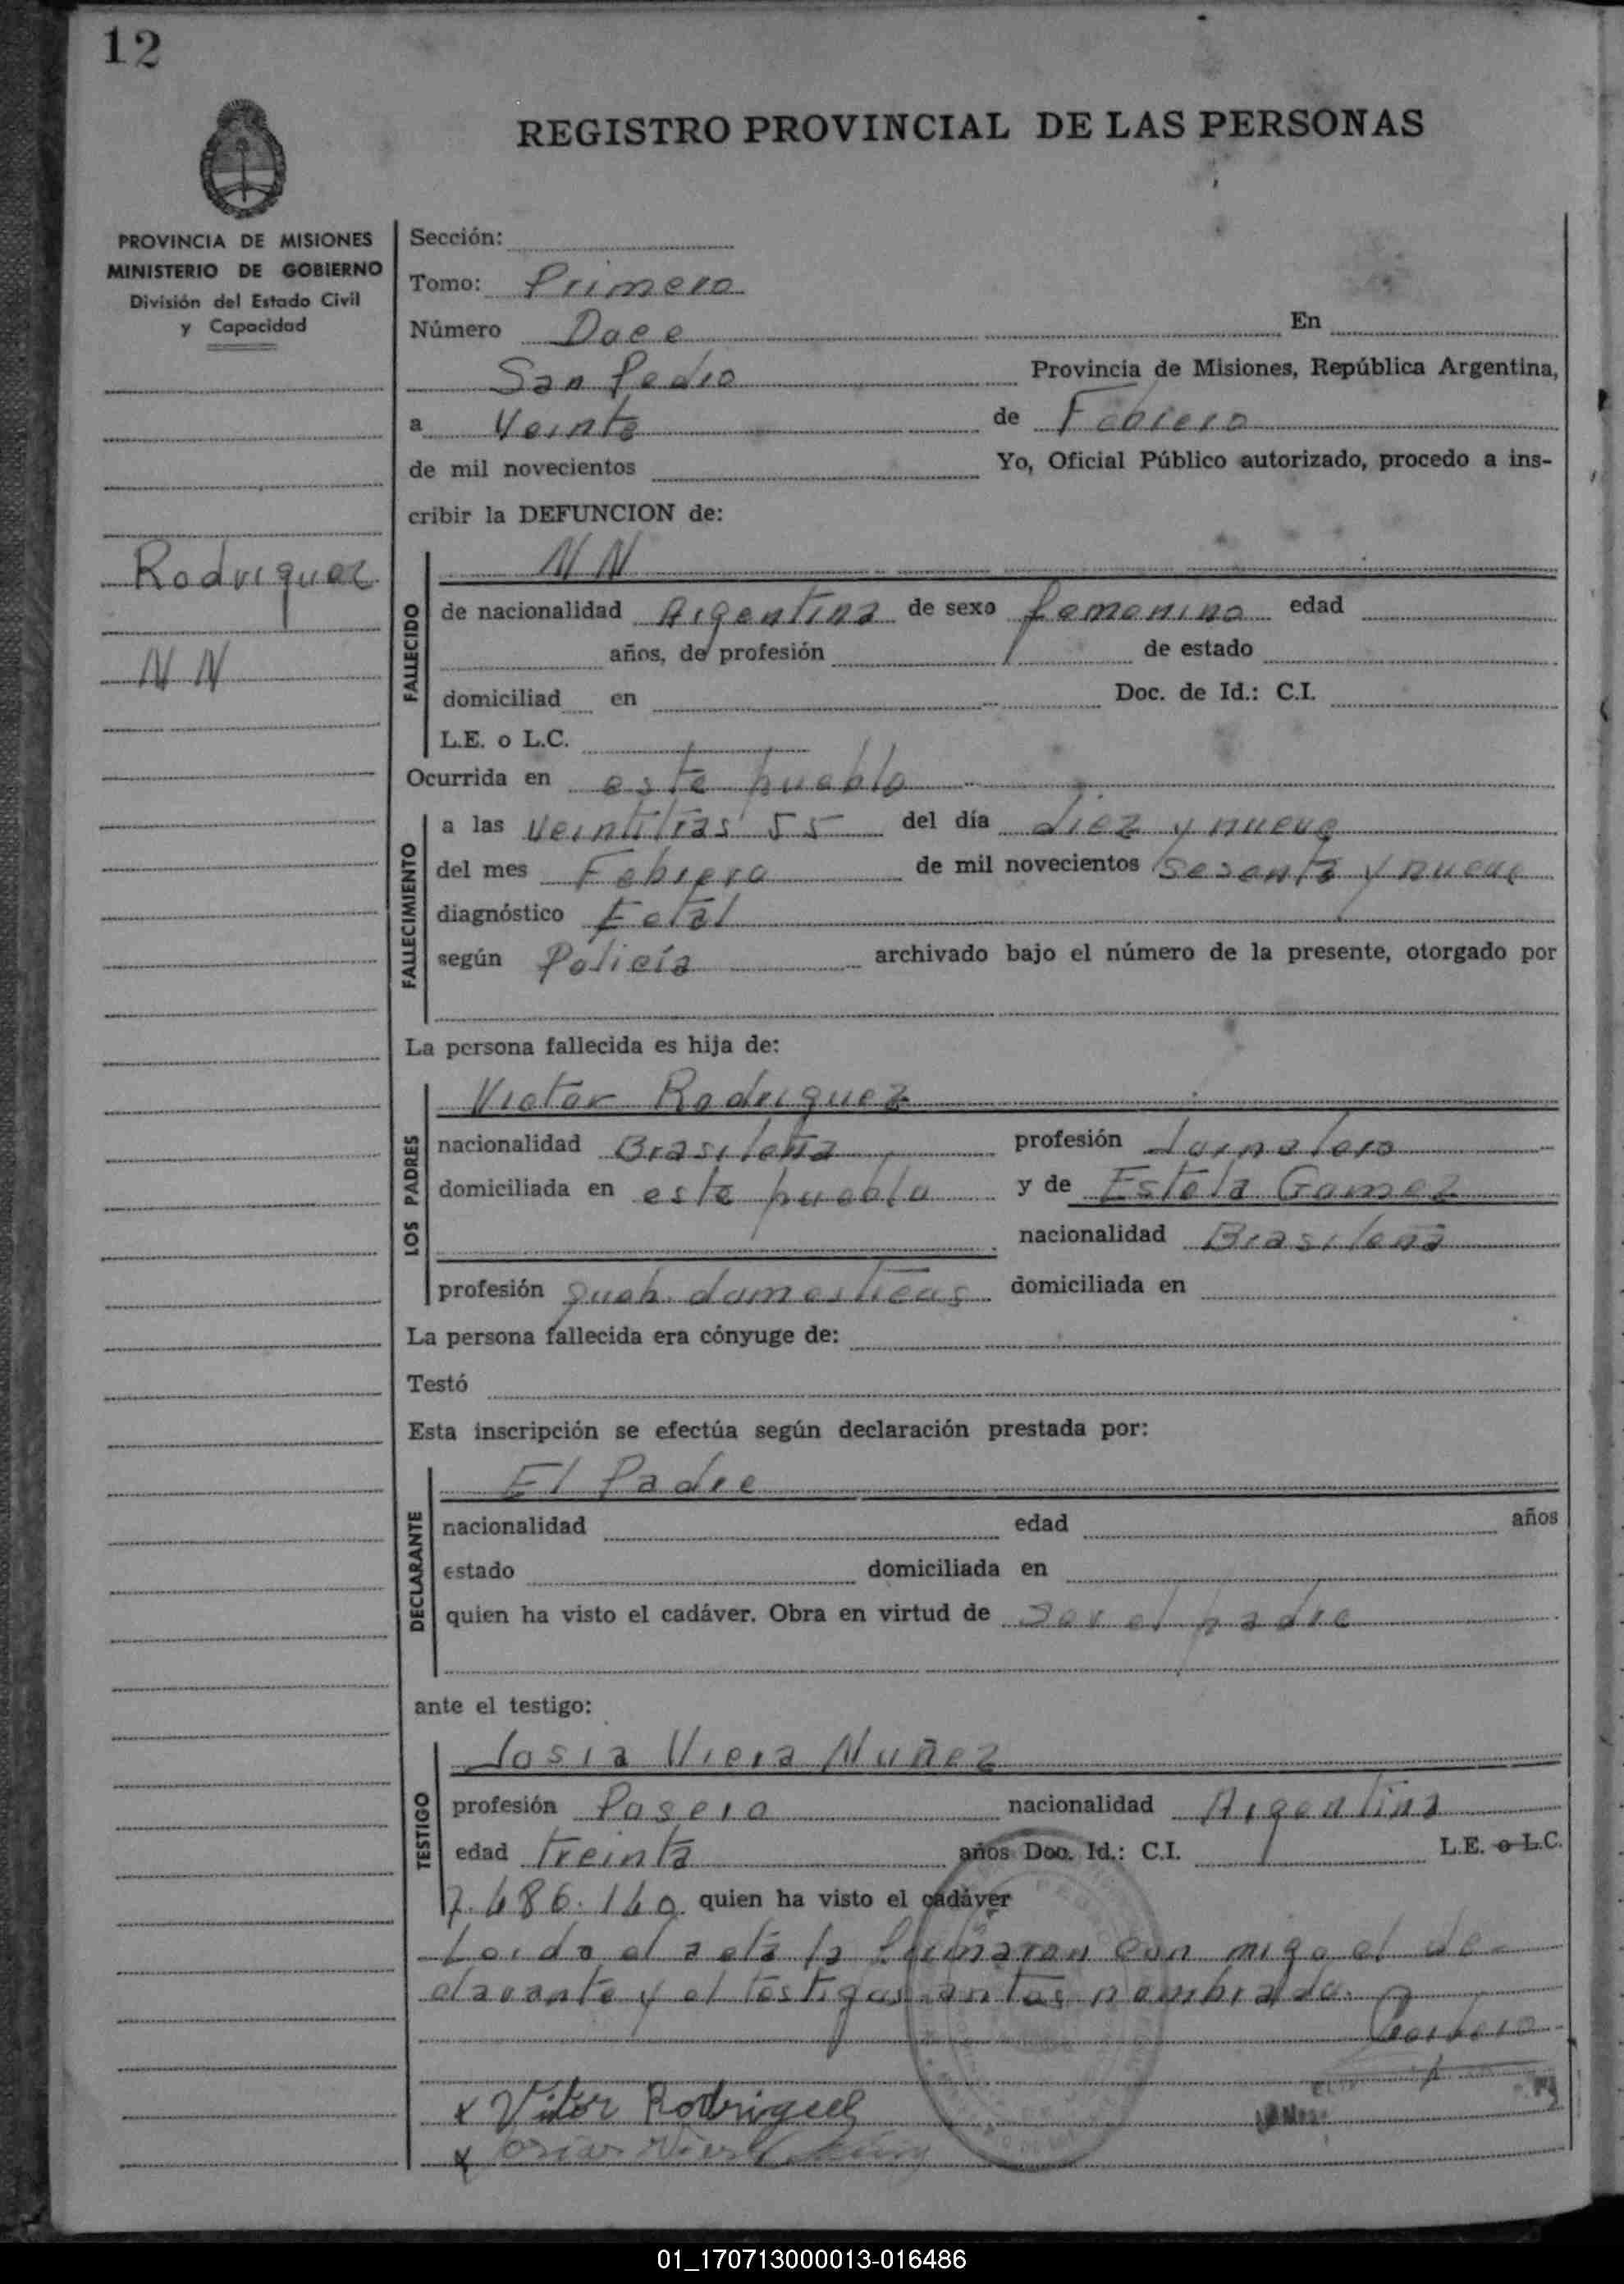 12
REGISTRO PROVINCIAL DE LAS PERSONAS
PROVINCIA DE MISIONES
MINISTERIO DE GOBIERNO
División del Estado Civil
y Capacidad
Rodriguez
N N
Sección:
Tomo: Primero
Número Doce En
San Pedro Provincia de Misiones, República Argentina,
a Veinte de Febrero
de mil novecientos Yo, Oficial Público autorizado, procedo a ins-
cribir la DEFUNCION de:
FALLECIDO
N N
de nacionalidad Argentina de sexo femenino edad
años, de profesión de estado
domiciliad en Doc. de Id.: C.I.
L.E. o L.C.
Ocurrida en este pueblo
FALLECIMIENTO
a las Veintitras 55 del día diez y nueve
del mes Febrero de mil novecientos sesenta y nueve
diagnóstico Fetal
según Policía archivado bajo el número de la presente, otorgado por
La persona fallecida es hija de:
LOS PADRES
Victor Rodriguez
nacionalidad Brasileña profesión Jornalero
domiciliada en este pueblo y de Estela Gomez
nacionalidad Brasileña
profesión queh. domesticos domiciliada en
La persona fallecida era cónyuge de:
Testó
Esta inscripción se efectúa según declaración prestada por:
DECLARANTE
El Padre
nacionalidad edad años
estado domiciliada en
quien ha visto el cadáver. Obra en virtud de Ser el padre
ante el testigo:
TESTIGO
Josia Viera Nuñez
profesión Posero nacionalidad Argentina
edad treinta años Doc. Id.: C.I. L.E. o L.C.
7.486.140 quien ha visto el cadáver
Leido el acta la firmaron con migo el de-
clarante y el testigos antes nombrado.
x Vitor Rodriguez
x
01_170713000013-016486